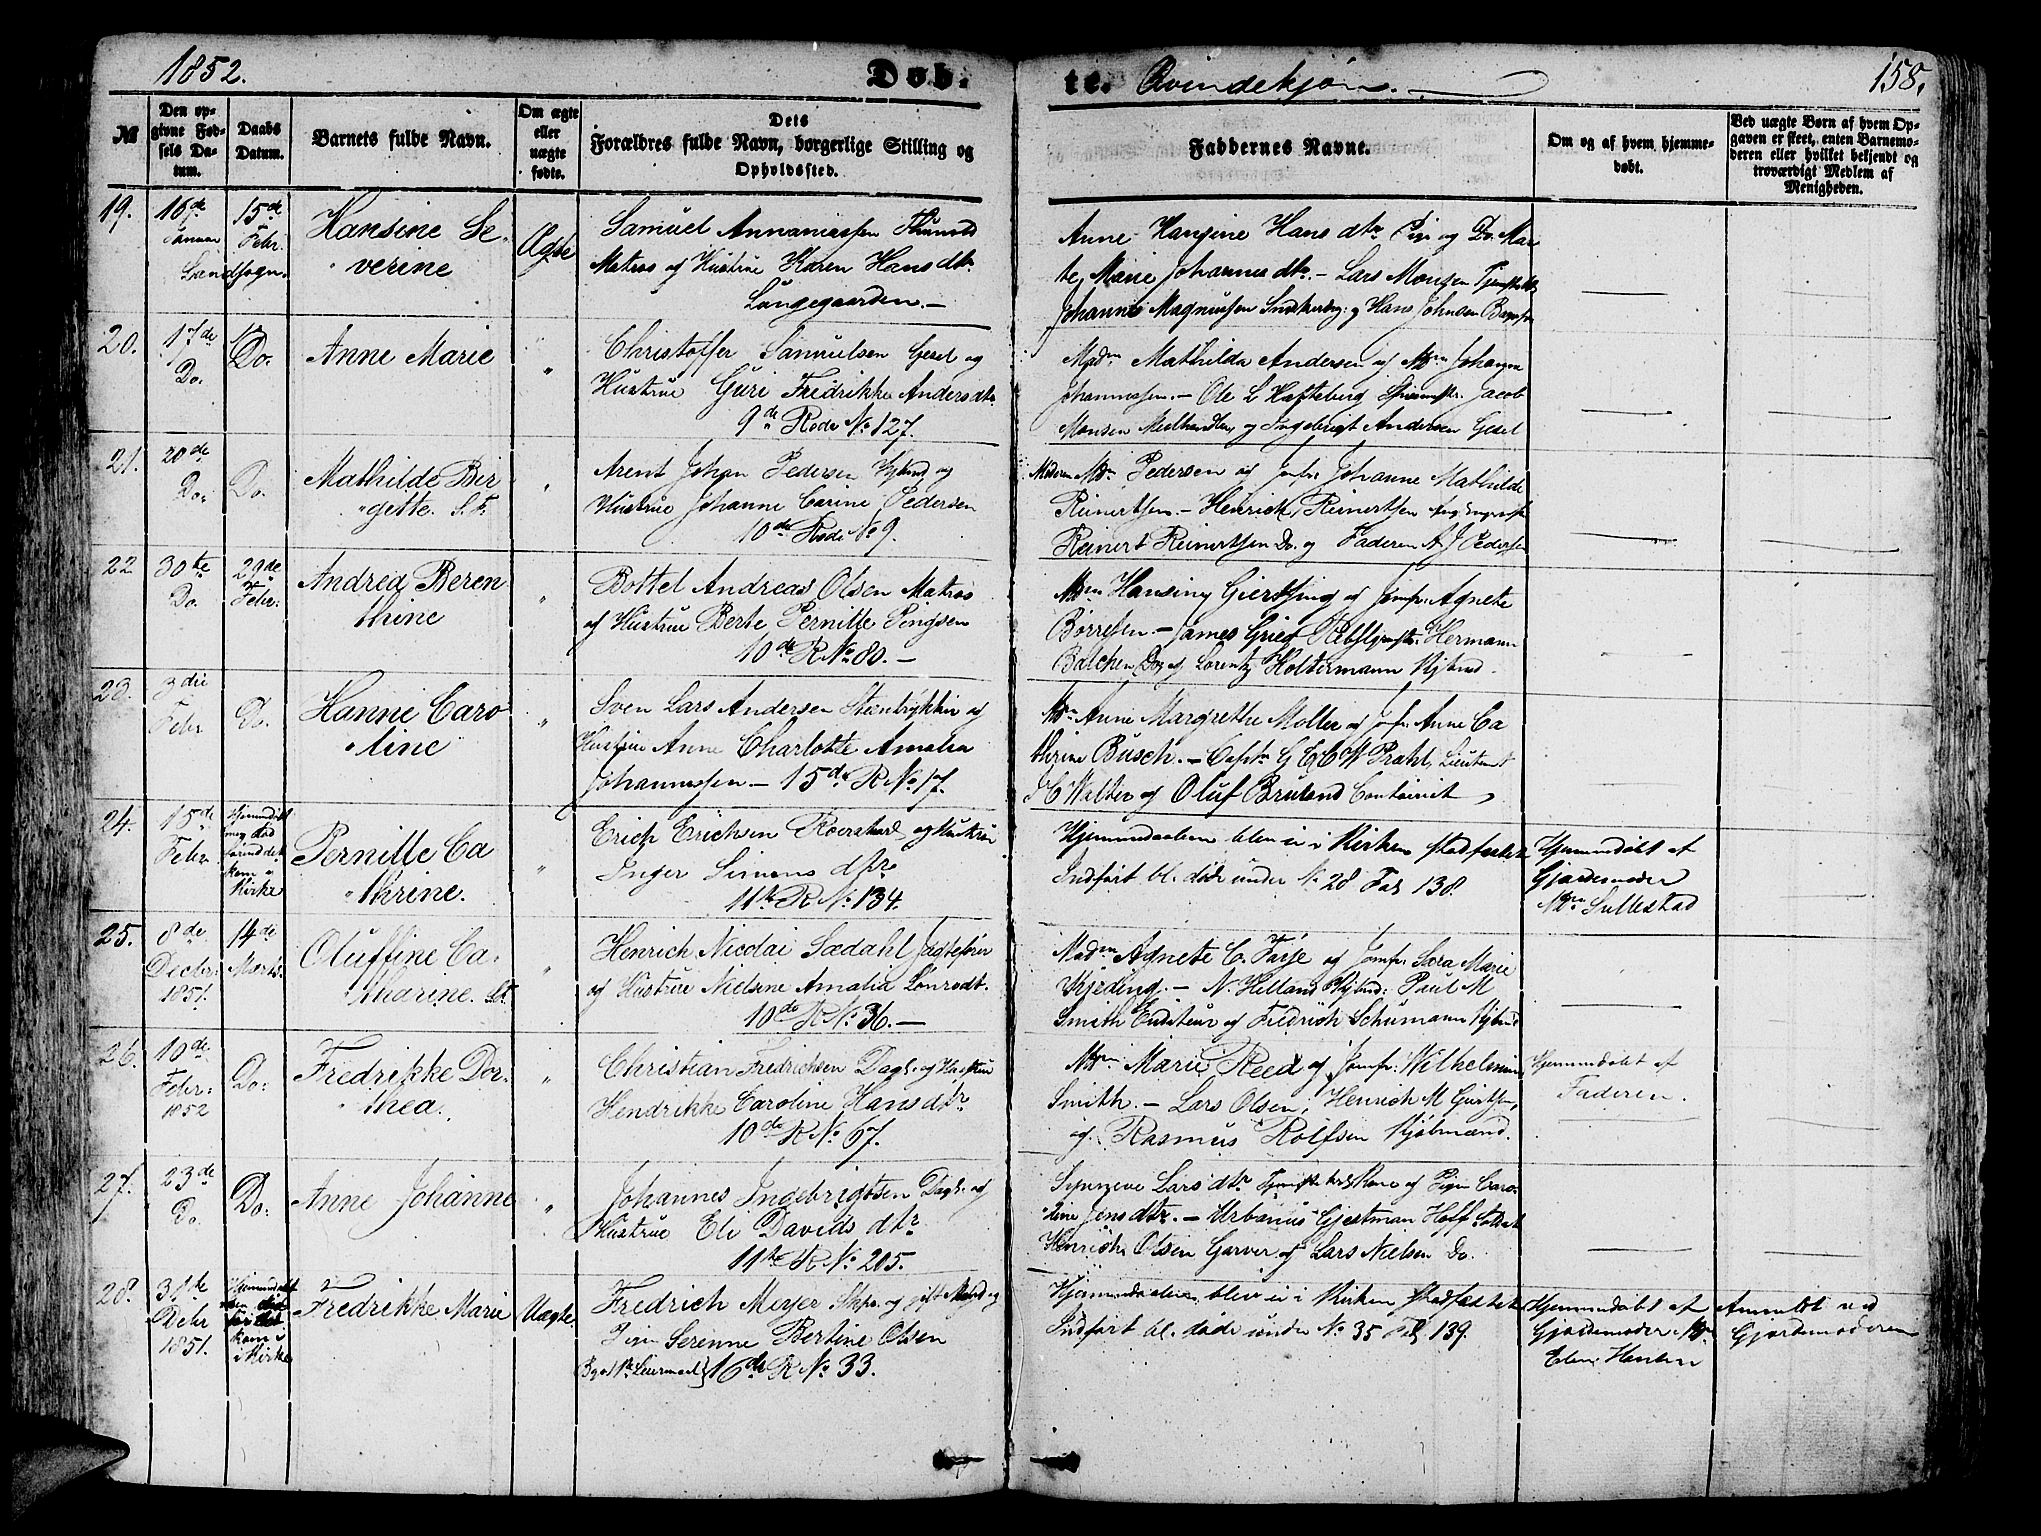 1852.
Døb-
te.
Qvindekjøn.
158.
№
Den op-
givne Fød-
sels Da-
tum.
Daabs
Datum.
Barnets fulde Navn.
Om ægte
eller
uægte
fødte.
Dets
Forældres fulde Navn, borgerlige Stilling og
Opholdssted.
Faddernes Navne.
Om og af hvem hjemme-
døbt.
Ved uægte Børn af hvem Op-
gaven er skeet, enten Barnemo-
deren eller hvilket bekjendt og
troværdigt Medlem af
Menigheden.
19.
16de
Januar
Landsogn.
15de
Febr.
Hansine Se-
verine
Ægte
Samuel Annaniassen
Matros og Hustrue Karen Hansdtr.
Lungegaarden.
Anne Hansine Hansdtr Pige og Do Mar-
te Marie Johannesdtr. - Lars Monsen
Johannes Magnussen og Hans Johnsen
20.
17de
Do.
Do.
Anne Marie
"
Christoffer Samuelsen Gesel og
Hustrue Guri Fredrikke Andersdtr
9de Rode No 127.
Madm Mathilda Andersen og Mdm Johanna
Johannessen. - Ole L Hafteberg Jacob
Monsen Meelhandler og Ingebrigt Andersen Gesel
21.
20de
Do.
Do.
Mathilde Bir
gette. S.F.
"
Arent Johan Pedersen Kjbmd og
Hustrue Johanne Carine Pedersen
10de Rode No 9.
Moderen Mdm Pedersen og Jomfr Johanne Mathilde
Reinertsen - Henrich Reinertsen
Reinert Reinertsen Do. og Faderen A J Pedersen
22
30te
Do.
29de
Febr:
Andrea Beren
thine
"
Bottel Andreas Olsen Matros
og Hustrue Berte Pernille Pengsen
10de R No 80.
Mdm Hansine Giertsing og Jomfr. Agnete
Børresen - James Grieg Hermann
Balchen Do og Lorentz Holtermann Kjbmd.
23.
3die
Febr
Do.
Hanne Caro
line
"
Sven Lars Andersen Steentrykker og
Hustrue Anne Charlotte Amalia
Johannessen - 15de R No 17.
Mdm Anne Margrethe Møller og Jfr. Anne Ca
thrine Busch. - Capt: G E C W Prahl, Lieutnant
Walter og Oluf Bruland Contoirist
24.
15de
Febr
Hjemmedøbt
Kirke
Pernille Ca
thrine.
"
Erich Erichsen og Hustrue
Inger Simonsdtr.
11te R No 134.
Hjemmedaaben blev ei i Kirken stadfæstet
Indført bl. døde under No 28 Fol 138.
Hjemmedøbt af
Gjordemoder
Mdm Sullestad
25.
8de
Decbr:
1851.
14de
Marts.
Oluffine Ca-
tharine.
"
Henrich Nicolai Sædahl Jagtefører
og Hustrue Nielsine Amalia Lønrodt.
10de R No 36.
Madm Agnete C. Farje og Jomfr. Sara Marie
Kjeding. - N. Helland Kjbmd: Paul M
Smith og Fredrich Schumann Kjbmd
26.
10de
Febr:
1852
Do:
Fredrikke Dor-
thea.
"
Christian Fredrichsen Dagl. og Hustrue
Hendrikke Caroline Hansdtr.
10de R No 67.
Mdm Marie Reed og Jomfr. Wilhelmine
Smith. - Lars Olsen, Henrich M Giertsen,
og Rasmus Rolfsen Kjøbmænd.
Hjemmedøbt af
Faderen.
27.
23de
Do.
Do:
Anne Johanne
"
Johannes Ingebrigtsen Dagl. og
Hustrue Eli Davidsdtr
11te R No 205.
Synneve Larsdtr Kone og Pige Caro-
line Jensdtr. - Urbanus Gjestman Hoff
Henrich Olsen Garver og Lars Nielsen Do.
28.
31te
Debr
1851.
Hjemmedøbt
kom i
Kirke
Fredrikke Marie
Uægte
Fredrich Meyer og gift Mand og
Pige Serenne Bertine Olsen
16de R No 33.
Hjemmedaaben blev ei i Kirken Stadfæstet
Indført bl. døde under No 35 Fol 139.
Hjemmedøbt af
Gjordemoder Mdm
Hansen
Anmeldt ved
Gjordemoderen